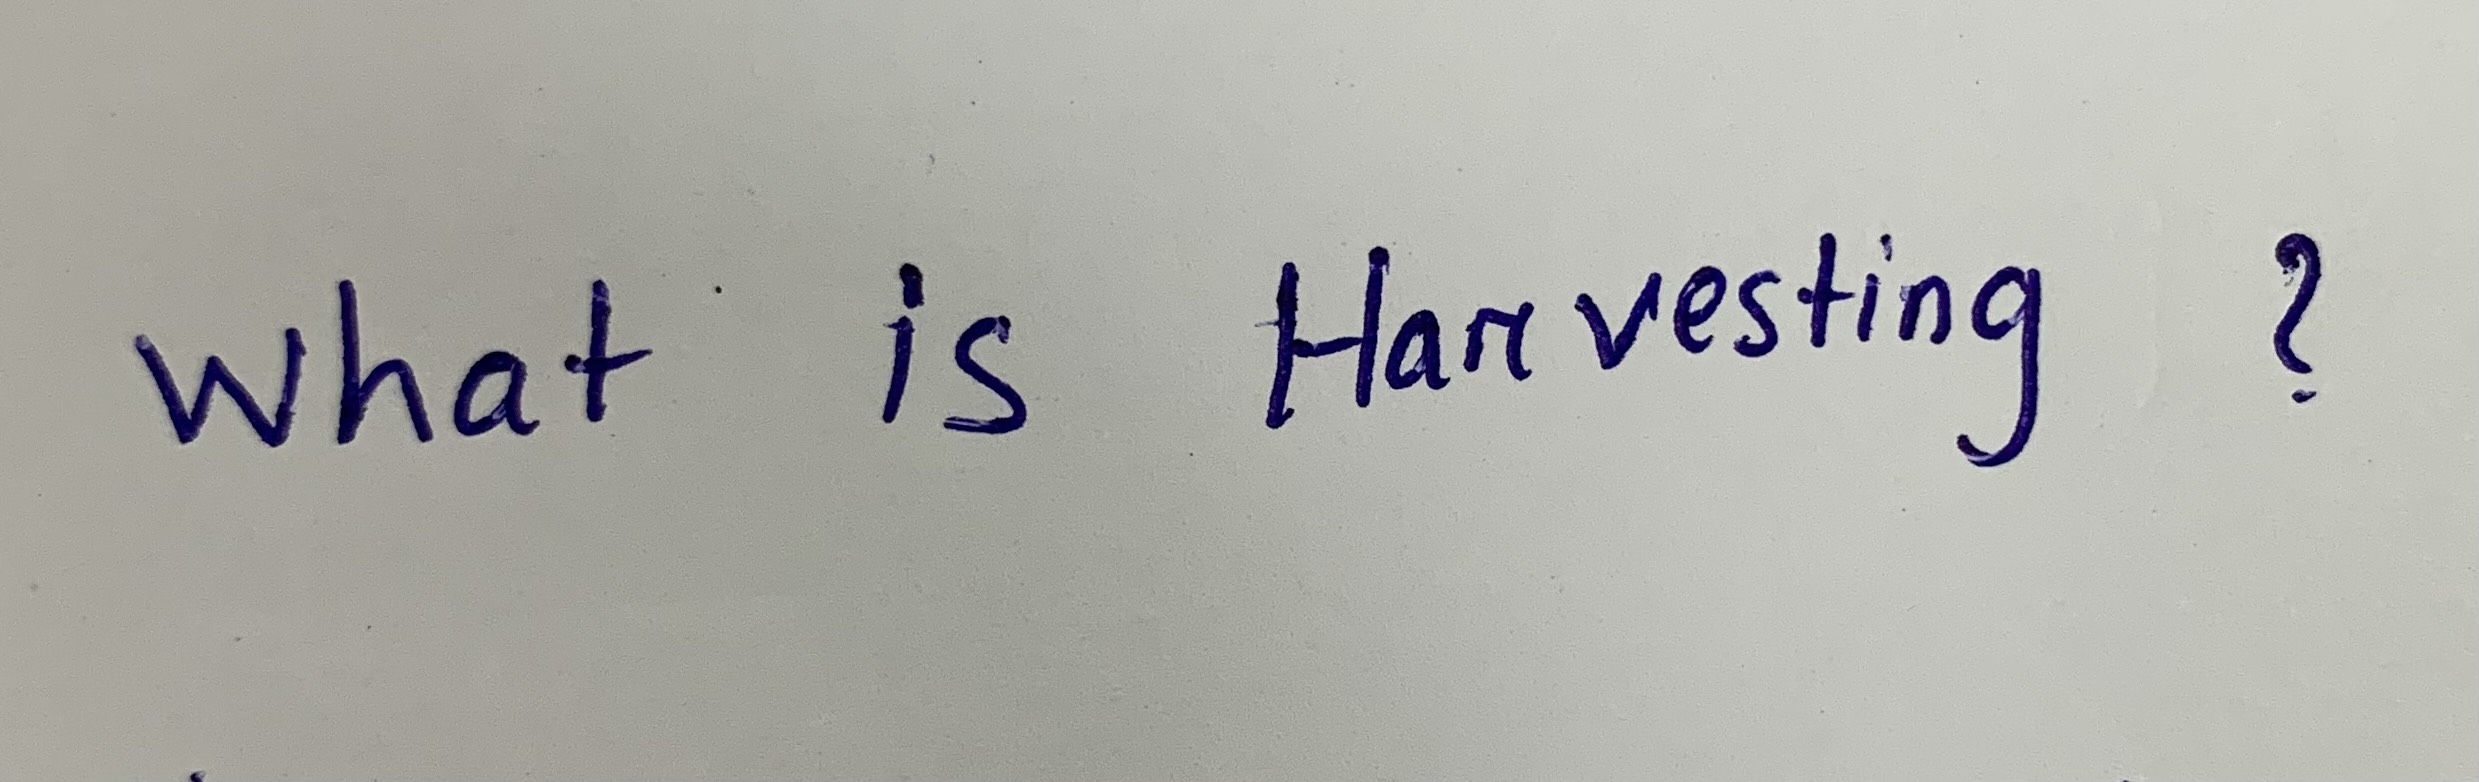 What is Harvesting ?